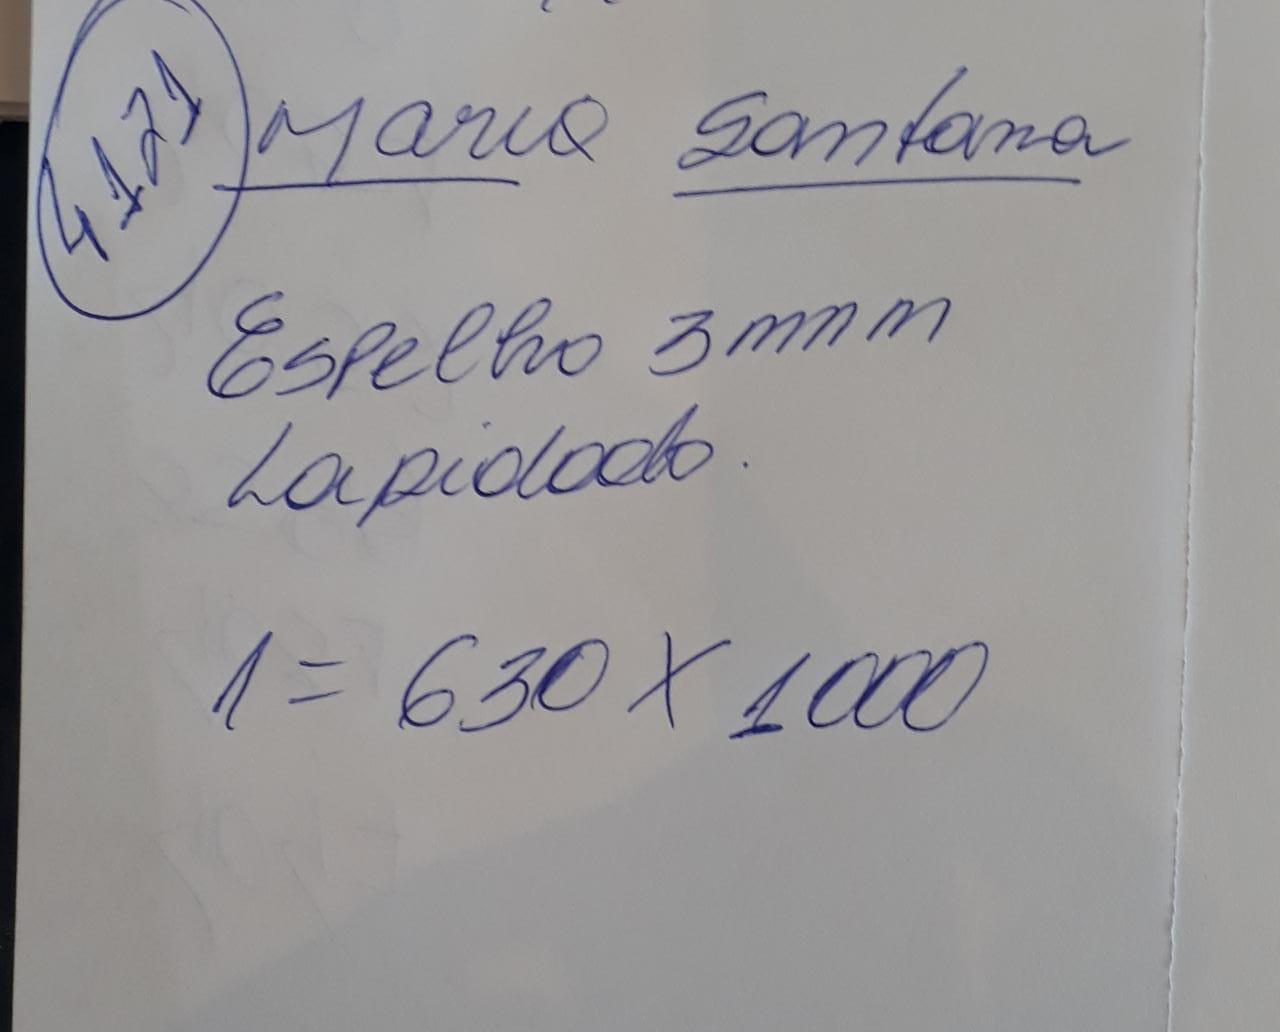 4121
Maria Santana
Espelho 3mm
Lapidado.
1 = 630 X 1000